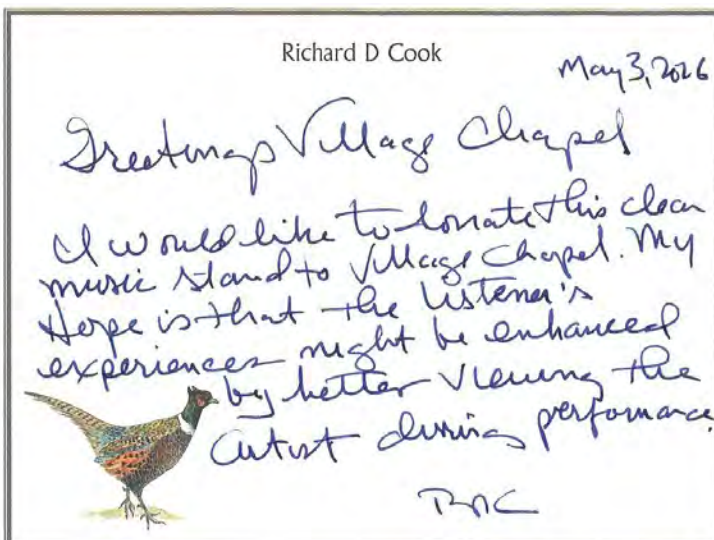 Richard D Cook
May 3, 2026
Greetings Village Chapel
I would like to donate this clear
music stand to Village Chapel. My
Hope is that the listener's
experiences might be enhanced
by better viewing the
artist during performance.
RDC